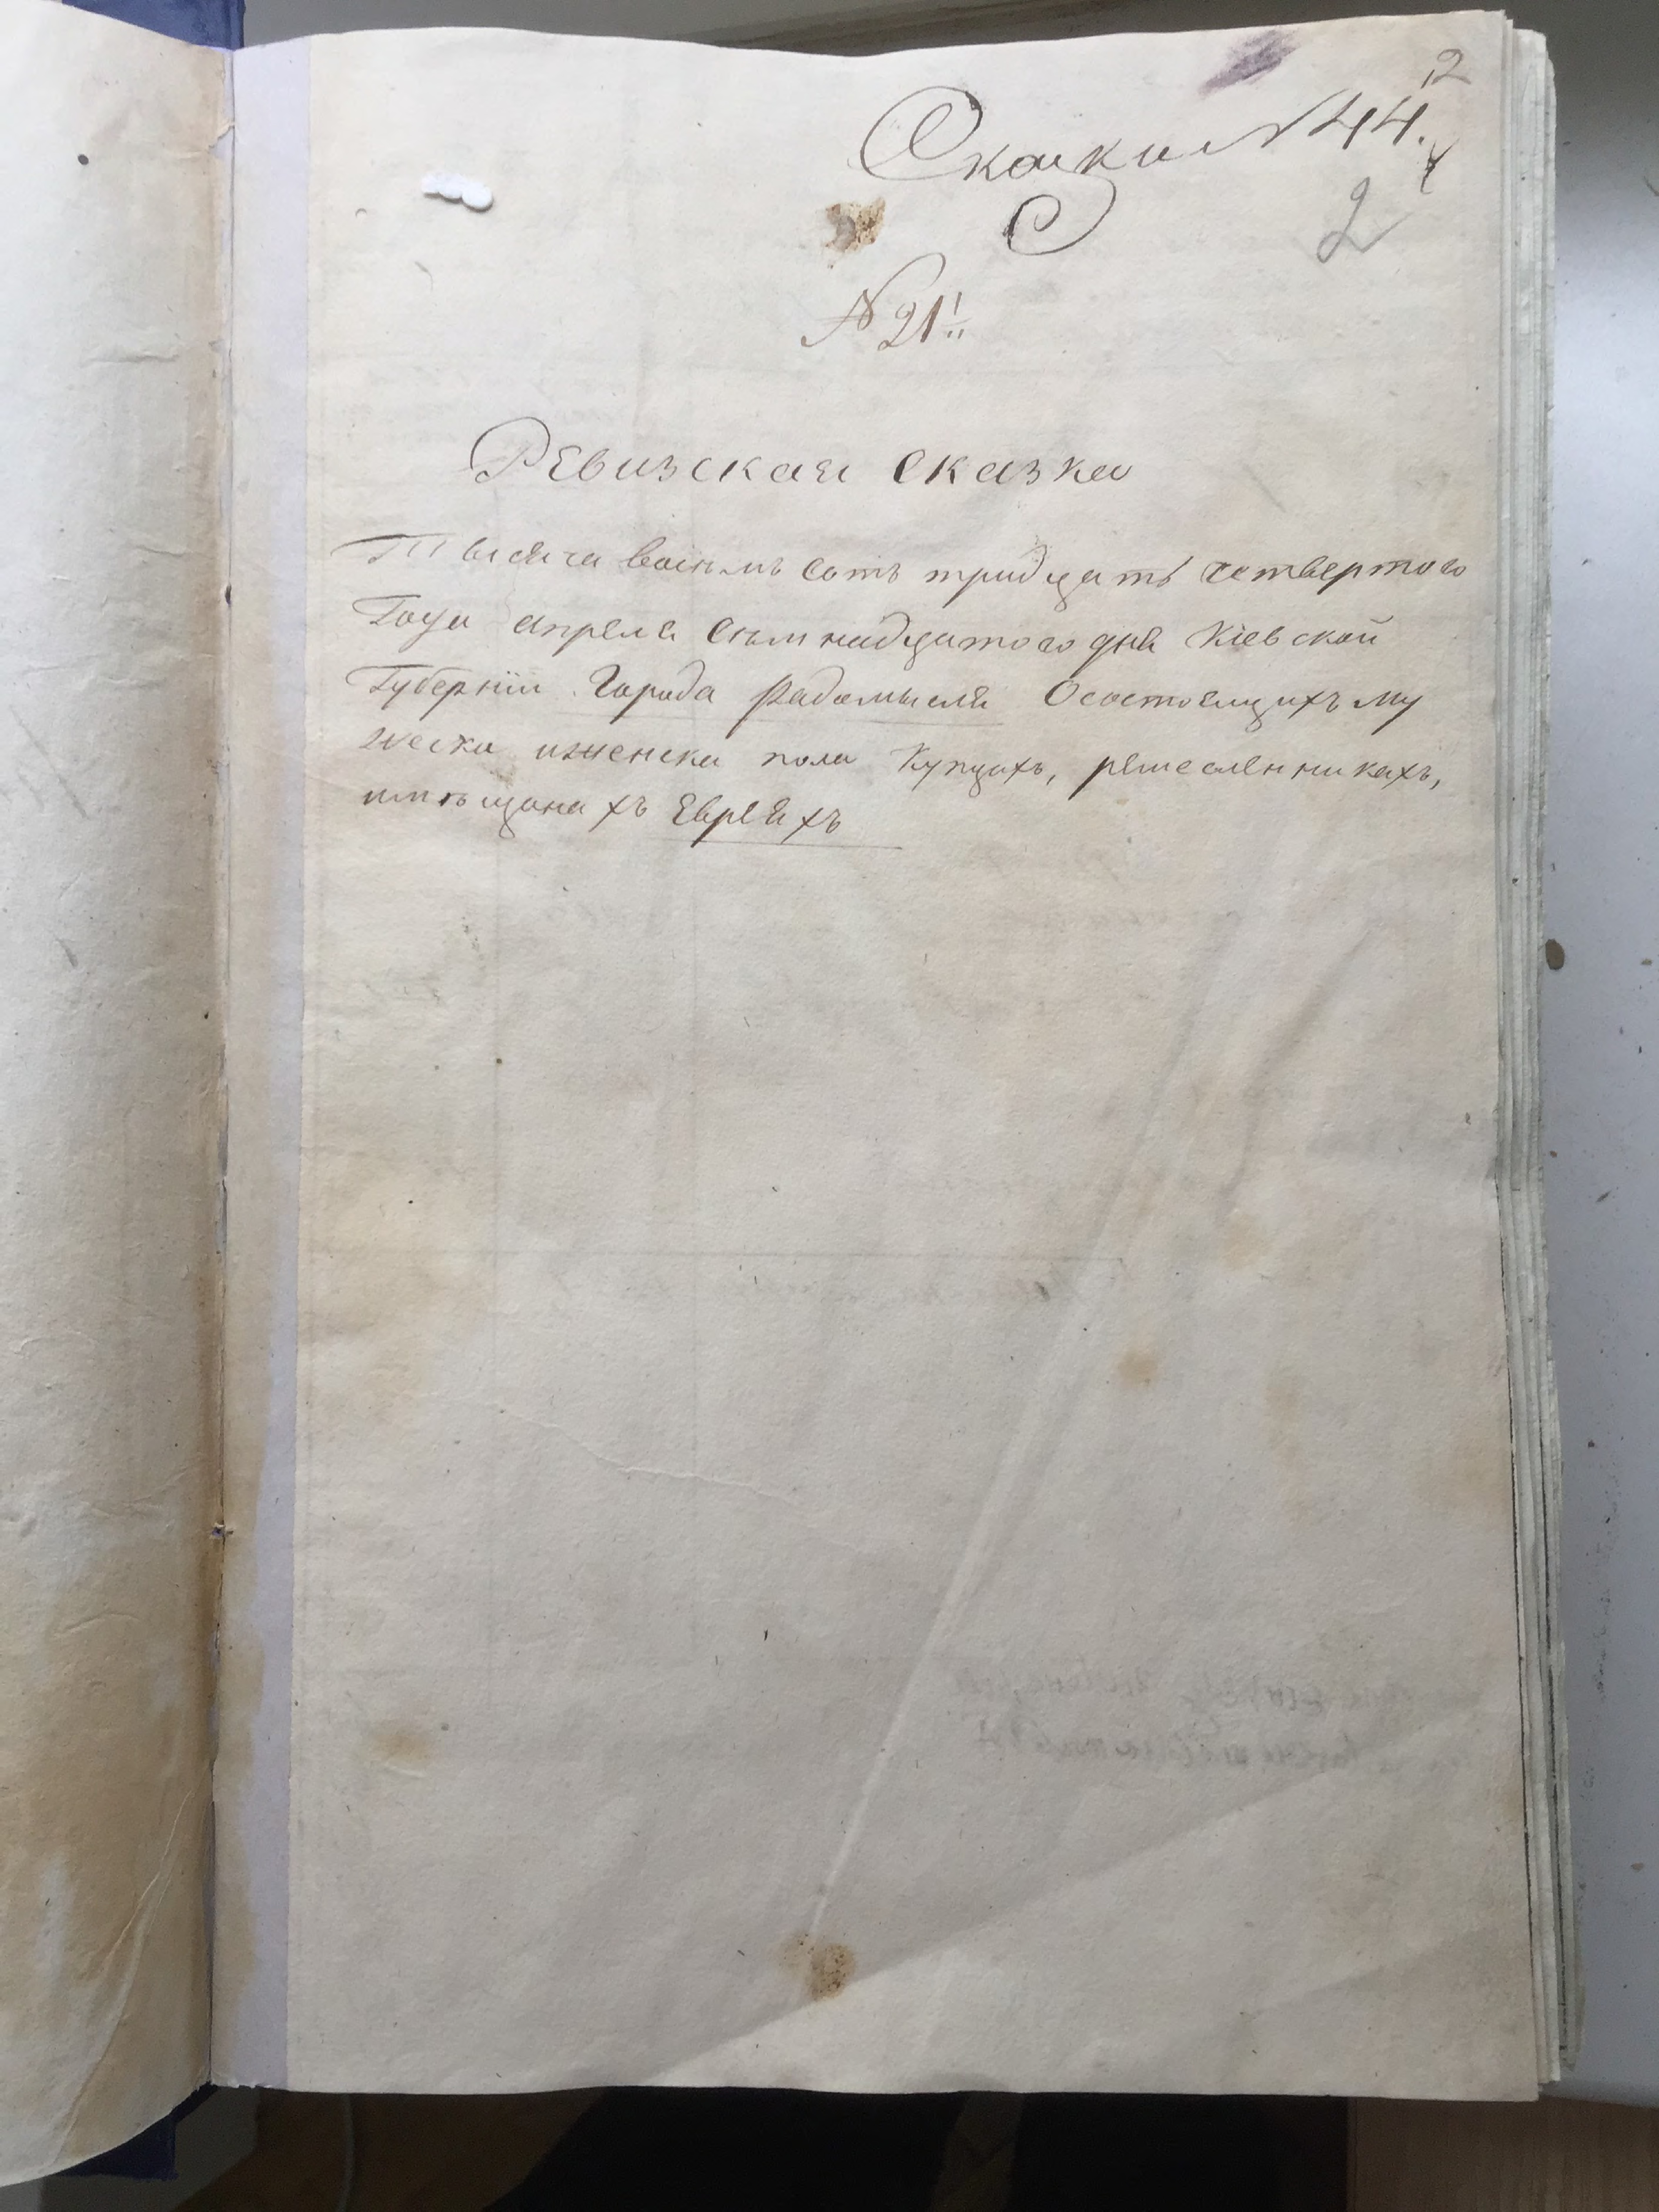 2
Сказки N 44.
2
N 21
Ревизская сказка
Тысяча восемъ сотъ тридцать четвертого
Года апреля семнадцатого дня Кіевской
Губерніи Города Радомысля Осостоящихъ му
жеска иженска пола Купцахъ, ремесленникахъ,
имѣщанахъ Евреяхъ